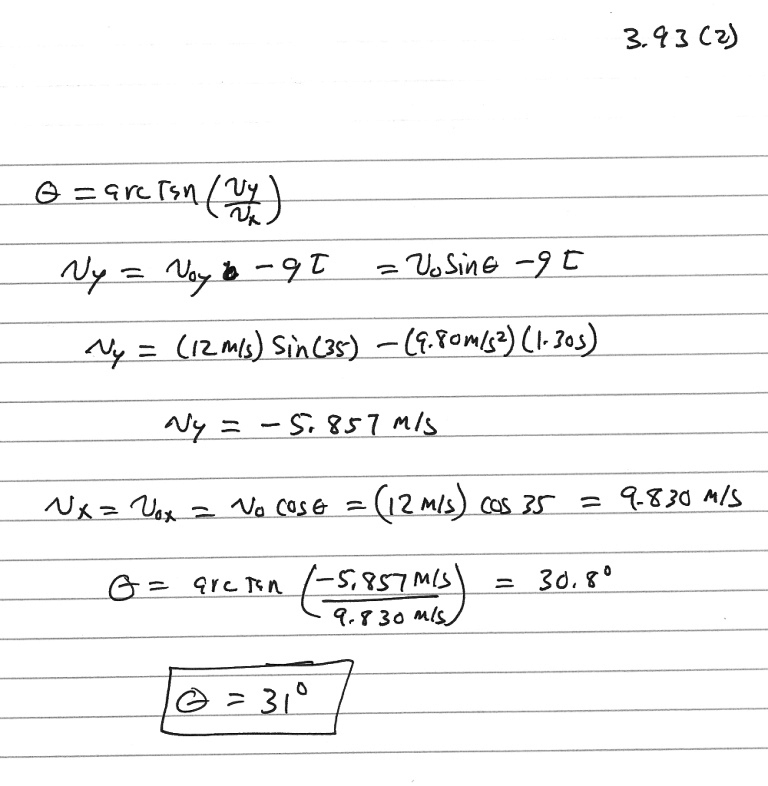 3.93 (2)
θ = arcTan (Vy/Vx)
Vy = Voy - gt = VoSinθ - gt
Vy = (12 m/s) Sin(35) - (9.80m/s²)(1.30s)
Vy = -5.857 m/s
Vx = Vox = Vo cosθ = (12 m/s) cos 35 = 9.830 m/s
θ = arcTan (-5.857 m/s / 9.830 m/s) = 30.8°
θ = 31°